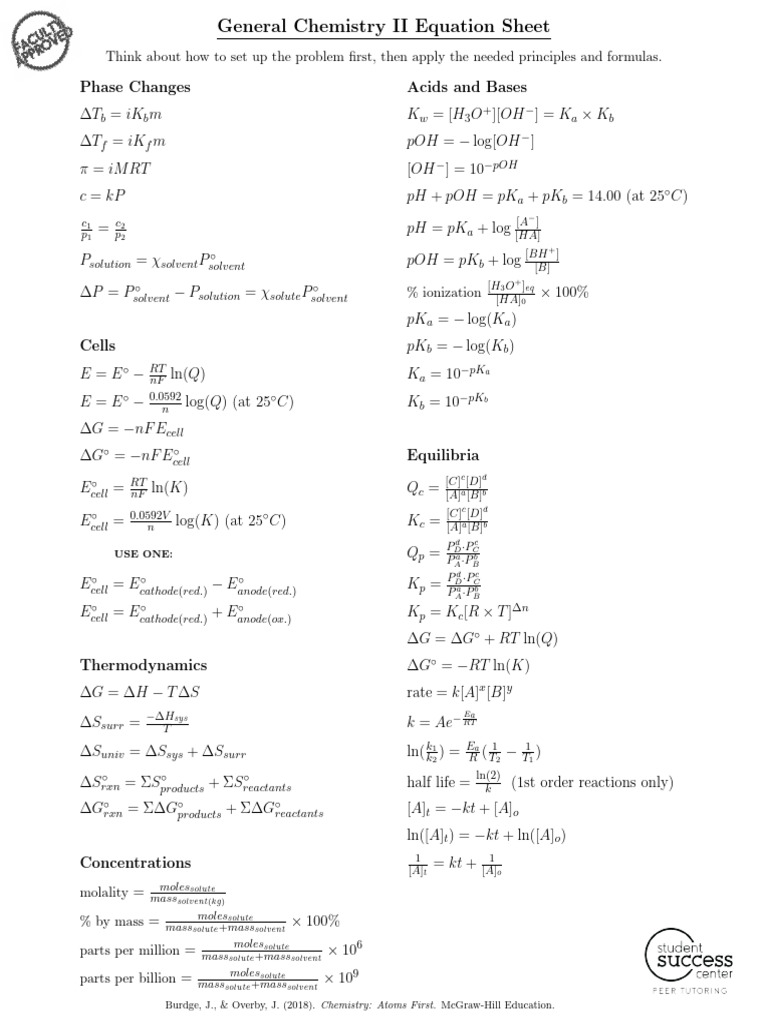 FACULTY
APPROVED
General Chemistry II Equation Sheet
Think about how to set up the problem first, then apply the needed principles and formulas.
Phase Changes
ΔT_b = iK_b m
ΔT_f = iK_f m
π = iMRT
c = kP
c_1/p_1 = c_2/p_2
P_solution = χ_solvent P°_solvent
ΔP = P°_solvent − P_solution = χ_solute P°_solvent
Cells
E = E° − RT/nF ln(Q)
E = E° − 0.0592/n log(Q) (at 25°C)
ΔG = −nFE_cell
ΔG° = −nFE°_cell
E°_cell = RT/nF ln(K)
E°_cell = 0.0592V/n log(K) (at 25°C)
USE ONE:
E°_cell = E°_cathode(red.) − E°_anode(red.)
E°_cell = E°_cathode(red.) + E°_anode(ox.)
Thermodynamics
ΔG = ΔH − TΔS
ΔS_surr = −ΔH_sys/T
ΔS_univ = ΔS_sys + ΔS_surr
ΔS°_rxn = ΣS°_products + ΣS°_reactants
ΔG°_rxn = ΣΔG°_products + ΣΔG°_reactants
Concentrations
molality = moles_solute/mass_solvent(kg)
% by mass = moles_solute/mass_solute+mass_solvent × 100%
parts per million = moles_solute/mass_solute+mass_solvent × 10^6
parts per billion = moles_solute/mass_solute+mass_solvent × 10^9
Acids and Bases
K_w = [H_3O^+][OH^−] = K_a × K_b
pOH = − log[OH^−]
[OH^−] = 10^−pOH
pH + pOH = pK_a + pK_b = 14.00 (at 25°C)
pH = pK_a + log [A^−]/[HA]
pOH = pK_b + log [BH^+]/[B]
% ionization [H_3O^+]_eq/[HA]_0 × 100%
pK_a = − log(K_a)
pK_b = − log(K_b)
K_a = 10^−pK_a
K_b = 10^−pK_b
Equilibria
Q_c = [C]^c[D]^d/[A]^a[B]^b
K_c = [C]^c[D]^d/[A]^a[B]^b
Q_p = P_D^d.P_C^c/P_A^a.P_B^b
K_p = P_D^d.P_C^c/P_A^a.P_B^b
K_p = K_c[R × T]^Δn
ΔG = ΔG° + RT ln(Q)
ΔG° = −RT ln(K)
rate = k[A]^x[B]^y
k = Ae^−Ea/RT
ln(k_1/k_2) = E_a/R(1/T_2 − 1/T_1)
half life = ln(2)/k (1st order reactions only)
[A]_t = −kt + [A]_o
ln([A]_t) = −kt + ln([A]_o)
1/[A]_t = kt + 1/[A]_o
student
success
center
PEER TUTORING
Burdge, J., & Overby, J. (2018). Chemistry: Atoms First. McGraw-Hill Education.